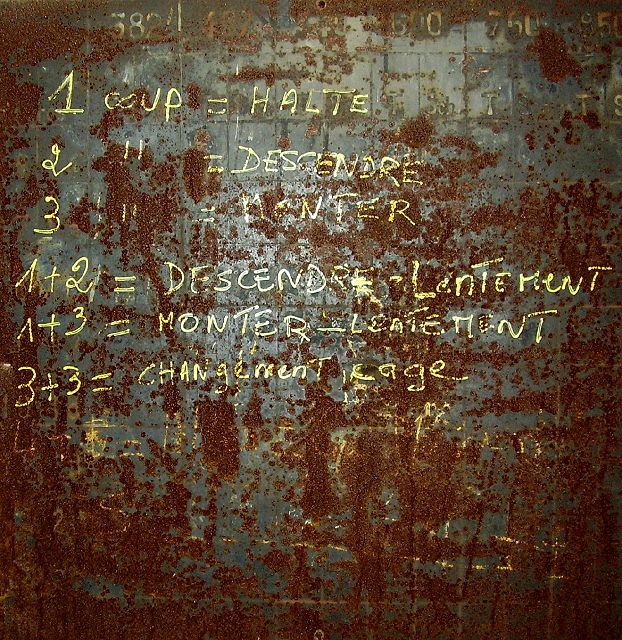 382 600 750 850
1 COUP = HALTE
2 " = DESCENDRE
3 " = MONTER
1+2 = DESCENDRE - LENTEMENT
1+3 = MONTER - LENTEMENT
3+3 = CHANGEMENT CAGE